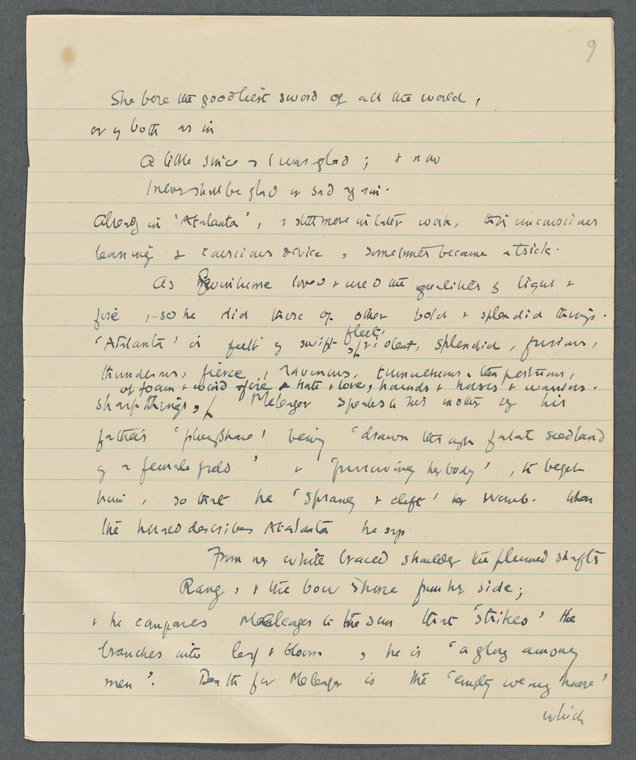 9
She bore the goodliest sword of all the world,
or of both as in
A little since & I was glad; & now
I never shall be glad or sad again.
Already in 'Atalanta', & still more in later work, this unconscious
leaning & conscious device, sometimes became a trick.
As Swinburne loved & used the qualities of light &
fire, so he did those of other bold & splendid things.
'Atalanta' is full of swift, fleet, violent, splendid, furious,
thunderous, fierce, ravenous, tumultuous, tempestuous,
of foam & wind & fire & hate & love, hounds & horses & warriors.
sharp things, Meleager speaks to his mother of his
father's 'ploughshare' being 'drawn through fatal seedland
of a female field' & 'furrowing her body', to beget
him, so that he 'sprang & cleft' her womb. When
the herald describes Atalanta he says
From her white braced shoulder the plumed shafts
Rang, & the bow shone from her side;
& he compares Meleager to the sun that 'strikes' the
branches into leaf & bloom, he is 'a glory among
men'. Death for Meleager is the 'empty weary house'
which